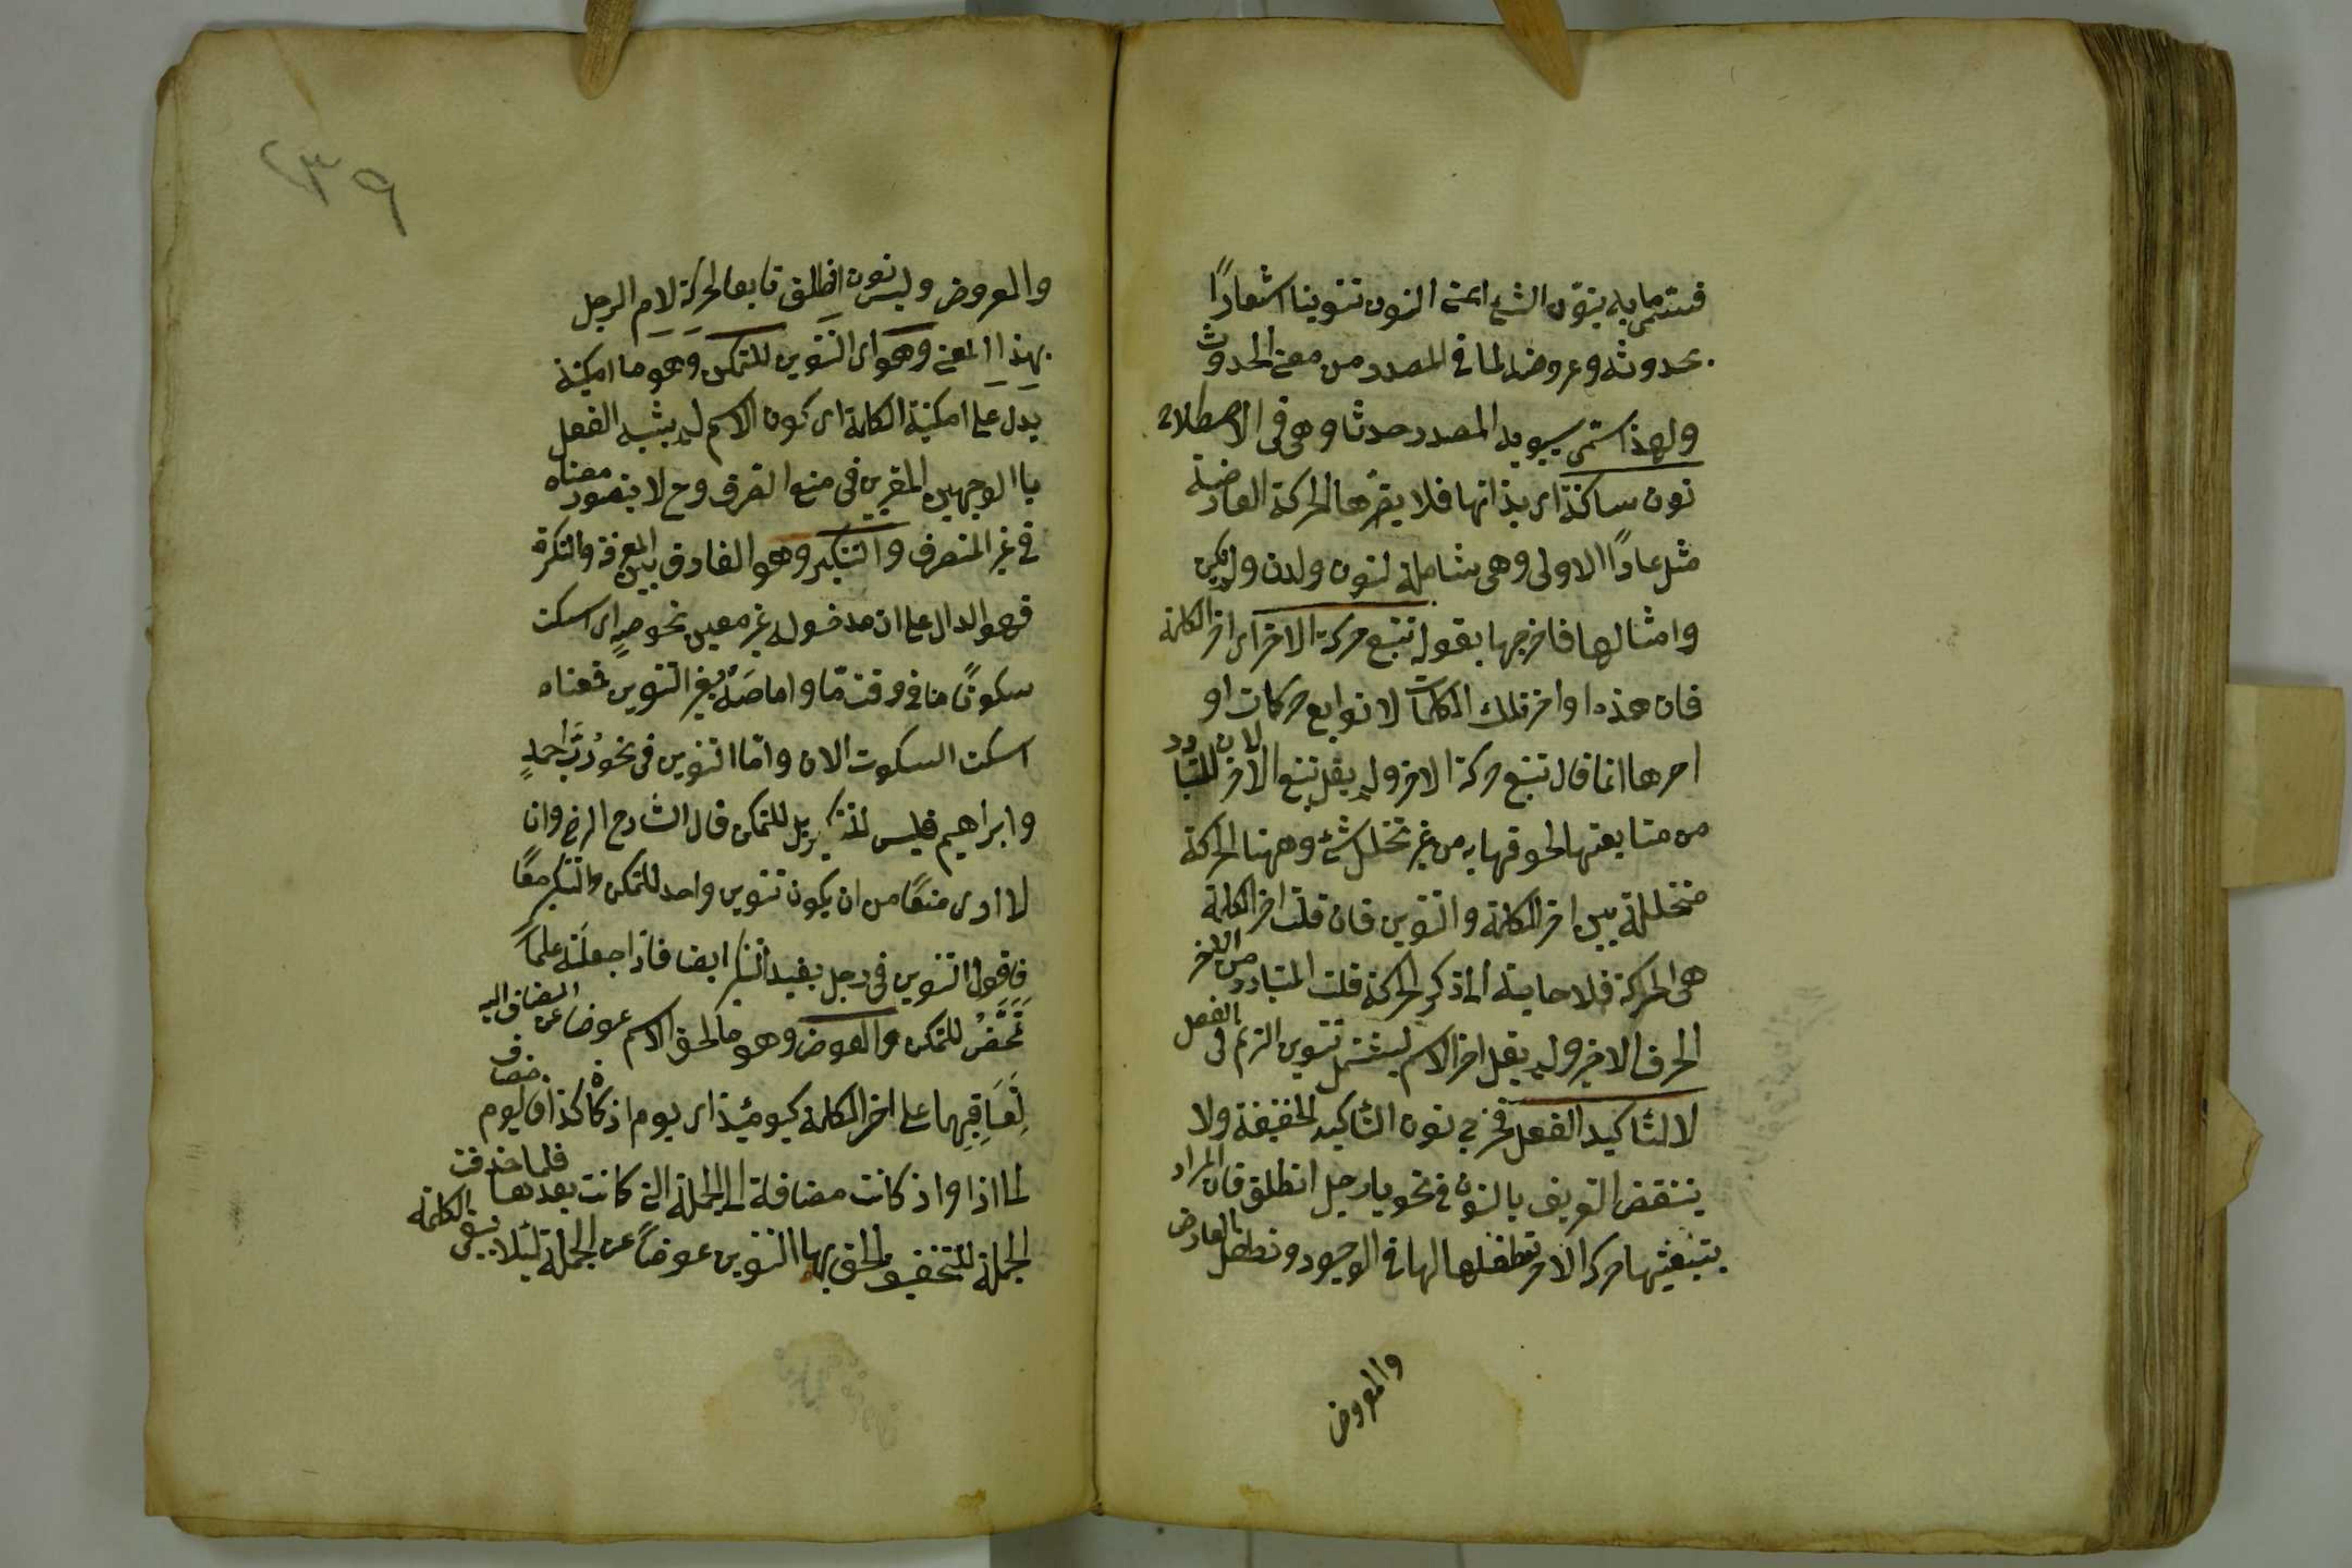 فسمى ما به ينوّن الشئ اعنى النون تنوينا اشعارًا
بحدوثه وعروضه لما فى المصدر من معنى الحدوث
ولهذا سمى سيبويه المصدر حدثا وهى فى الاصطلاح
نون ساكنة اى بذاتها فلا يضرها الحركة العارضة
مثل عادًا الاولى وهى شاملة لنون ولدن ولم يكن
وامثالها فاخرجها بقوله تتبع حركة الاخر اى اخر الكلمة
فان هذه اواخر تلك الكلمات لا توابع حركات او
اخرها انما قال تتبع حركة الاخر ولم يقل تتبع الاخر لان المتبادر
من متابعتها لحوقها به من غير تخلل شئ وههنا الحركة
متخللة بين اخر الكلمة والتنوين فان قلت اخر الكلمة
هى الحركة فلا حاجة الى ذكر الحركة قلت المتبادر من الاخر
الحرف الاخير ولم يقل اخر الاسم ليشتمل تنوين الترنم فى الفعل
لا لتاكيد الفعل فخرج نون التاكيد الخفيفة ولا
ينتقض التعريف بالنون فى نحو يا رجل انطلق فان المراد
بتبعيتها حركة الاخر تطفلها لها فى الوجود وتطفل العارض
والمعروض
٢٣٩
والمعروض وليس نون انطلق تابعا لحركة لام الرجل
بهذا المعنى وهو اى التنوين للتمكن وهو ما امكنية
يدل على امكنية الكلمة اى كون الاسم لم يشبه الفعل
بالوجهين المعتبرين فى منع الصرف وح لا يتصور معناه
فى غير المنصرف والتنكير وهو الفارق بين المعرفة والنكرة
فهو الدال على ان مدخوله غير معين نحو صهٍ اى اسكت
سكوتًا ما فى وقت مّا واما صَهْ بغير التنوين فمعناه
اسكت السكوت الان وامّا التنوين فى نحو رُبّ احمدٍ
وابراهيم فليس للتنكير بل للتمكن قال الشارح الرضى وانا
لا ارى منعًا من ان يكون تنوين واحد للتمكن والتنكير معًا
فاقول التنوين فى رجل يفيد التنكير ايضا فاذا جعلته علمًا
تمحّض للتمكن والعوض وهو ما لحق الاسم عوضا عن المضاف اليه
لتعاقبهما على اخر الكلمة كيومئذ اى يوم اذ كان كذا فاليوم مضاف
لما اذا واذ كانت مضافة الى الجملة التى كانت بعدها فلما حذفت
الجملة للتخفيف والحق بها التنوين عوضًا عن الجملة لئلا يبقى الكلمة